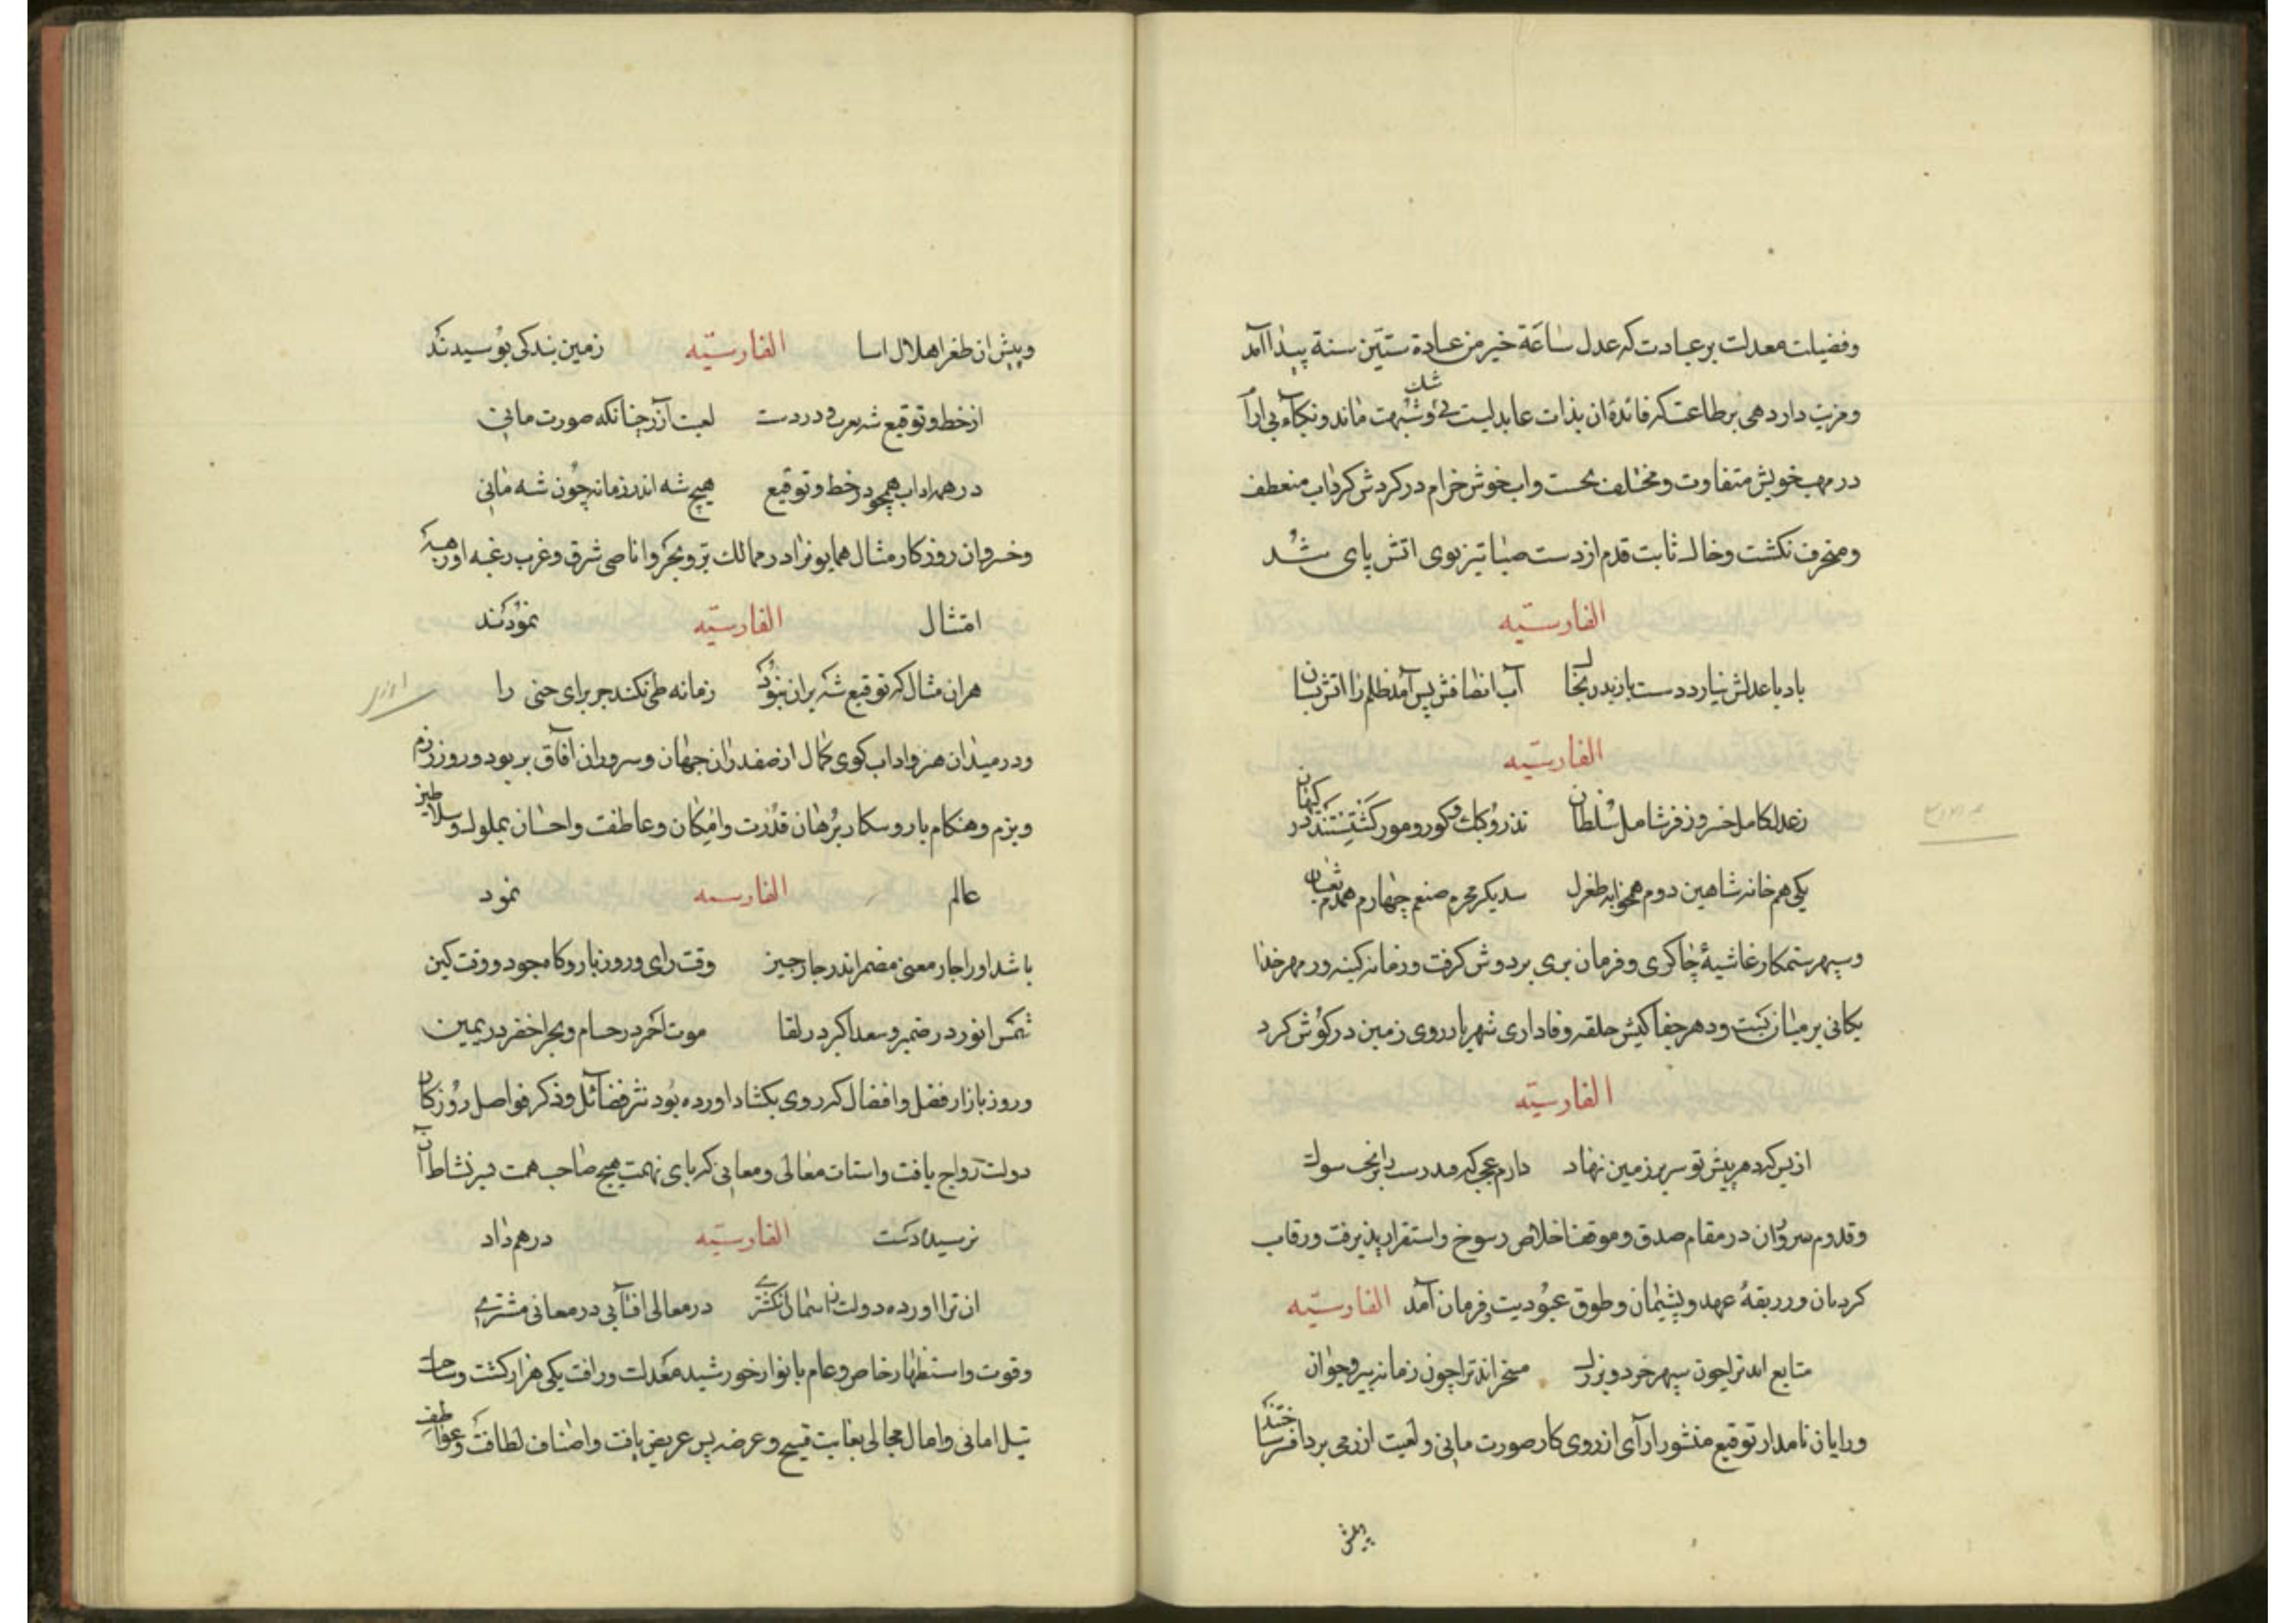 وفضیلت معدلت بر عبادت که عدل سَاعَة خیر من عبادة ستّین سنة پیدا آمد
ومزیت دادرهی بر طاعت که فائدهٔ ان بذات عابد لیست بی شک وشبهت نماند ونکباء بی ارا
در مهب خویش متفاوت ومختلف بحست واب خوش خرام در کردش کرداب منعطف
ومنحرف نکشت وخاك ثابت قدم از دست صبا تیز بوی اتش پای شد
الفارسیّه
باد با عدلش نیارد دست بازیدن بخاك آب انصافش پس آمد ظلم را اتش نشان
الفارسیّه
زعدل کامل خسرو زفر شامل سُلطان تذرو وکبك وکور ومور کشتستند در کیهان
یکی هم خانه شاهین دوم همخوابه طغرل سدیکر محرم ضیغم چهارم همدم ثعبان
وسپهر ستمکار غاشیهٔ چاکری وفرمان بری بر دوش کرفت وزمانه کینه ور مهر خدا
یکانی بر میان بست ودهر جفا کیش حلقه وفاداری شهریار روی زمین در کوش کرد
الفارسیّه
از بس که دهر پیش تو سر بر زمین نهاد دارم عجب که
وقدوم سروران در مقام صدق وموقف اخلاص رسوخ واستقرار پذیرفت ورقاب
کردنان در ربقهٔ عهد وپیمان وطوق عبُودیت وفرمان آمد الفارسیّه
متابع اند ترا چون سپهر خرد وبزرك مسخر اند ترا چون زمانه پیر وجوان
ورایان نامدار توقیع منشور ارآی از روی کار صورت مانی ولعبت ازر می برد افسر ساختند
پیش
وپیش ان طغرا هلال اسا الفارسیّه زمین بندکی بوسیدند
از خط وتوقیع شه لعبت آزر چنانکه صورت مانی
در همه اداب همچو در خط وتوقیع هیچ شه اندر زمانه چون شه مانی
وخسروان روزکار مثال همایون را در ممالك بر وبحر واقاصی شرق وغرب رغبه او رهبة
امتثال الفارسیّه نمُودند
هران مثال که توقیع شه بران نبوُد زمانه طی نکند جز برای حنی را
ودر میدان هنر واداب کوی کمال از صفدران جهان وسروران افاق بربود وروز رزم
وبزم وهنکام بار وسکار بُرهان قدرت وامکان وعاطفت واحسان بملوك وسلاطین
عالم الفارسیه نمود
باشد اورا چار معنی مضمر اندر چار چیز وقت رای وروز بار وکاه جود ووقت کین
شمس انور در ضمیر وسعد اکبر در لقا موت احمر در حسام وبحر اخضر در یمین
وروز بازار فضل وافضال که روی بکشاد اورده بُود نثر فضائل وذکر فواضل روزکار
دولت رواج یافت واسنات معالی ومعانی که پای نهمت هیچ صاحب همت بر نشاط آن
نرسیده است الفارسیّه در هم داد
ان ترا اورده دولت از اسمان انکشتری در معالی افتابی در معانی مشتری
وقوت واستظهار خاص وعام بانوار خورشید معدلت ورافت یکی هزار کشت وساحت
نیل امانی وامال مجالی بغایت فسیح وعرضه پس عریض یافت واصناف لطافت وعواطف